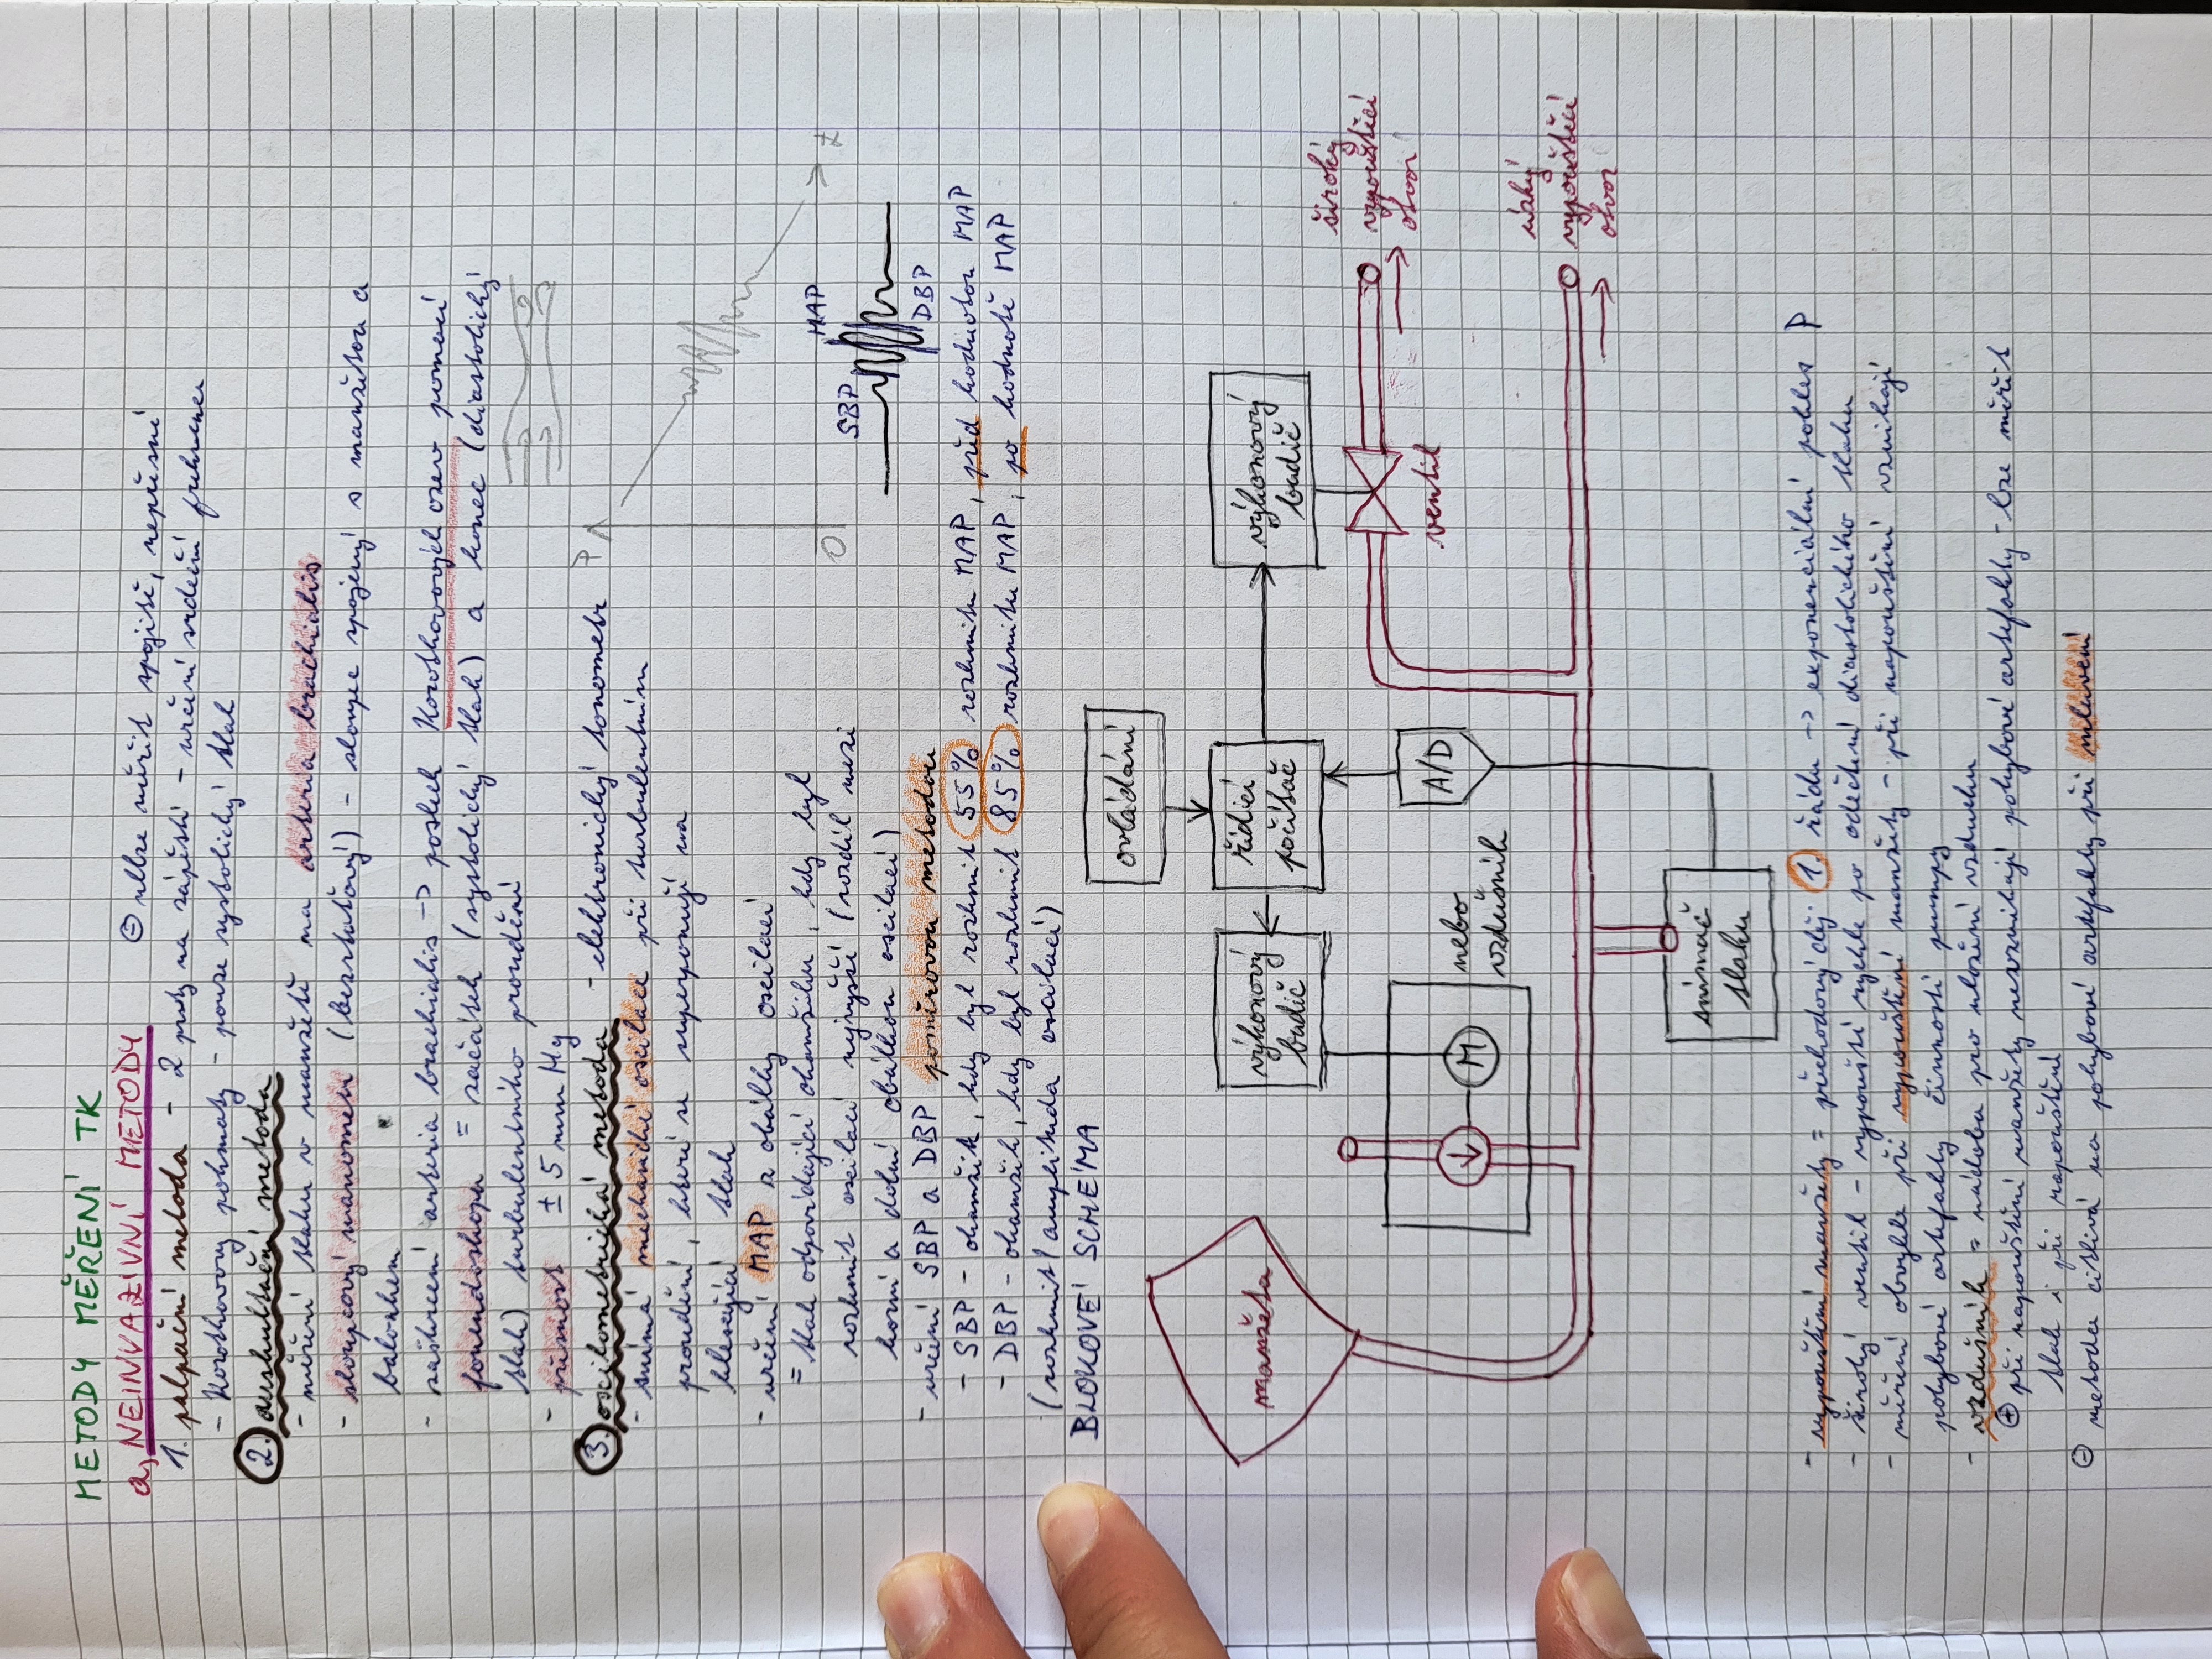 METODY MĚŘENÍ TK
a, NEINVAZIVNÍ METODY
⊖ nelze měřit spojitě, nepřesné
1. palpační metoda - 2 prsty na zápěstí - určení srdeční frekvence
- Korotkovovy pohmaty - pouze systolický tlak
2. auskultační metoda
- měření tlaku v manžetě na arteria brachialis
- sloupcový manometr (bezrtuťový) - sloupec spojený s manžetou a
balonkem
- zaškrcení arteria brachialis -> poslech Korotkovových ozev pomocí
fonendoskopu = začátek (systolický tlak) a konec (diastolický
tlak) turbulentního proudění
- přesnost ± 5 mm Hg
3. oscilometrická metoda - elektronický tonometr
- snímá mechanické oscilace při turbulentním
proudění, které se superponují na
klesající tlak
- určení MAP z obálky oscilací
= tlak odpovídající okamžiku, kdy byl
rozkmit oscilací nejvyšší (rozdíl mezi
horní a dolní obálkou oscilací)
P
0
t
SBP
MAP
DBP
- určení SBP a DBP poměrovou metodou
- SBP - okamžik, kdy byl rozkmit 55% rozkmitu MAP, před hodnotou MAP
- DBP - okamžik, kdy byl rozkmit 85% rozkmitu MAP, po hodnotě MAP
(rozkmit/amplituda oscilací)
BLOKOVÉ SCHÉMA
ovládání
manžeta
výkonový
budič
řídicí
počítač
výkonový
budič
široký
vypouštěcí
otvor
ventil
A/D
M
nebo
vzdušník
úzký
vypouštěcí
otvor
snímač
tlaku
- vypouštění manžety = přechodový děj 1. řádu -> exponenciální pokles P
- široký ventil - vypouští rychle po odečtení diastolického tlaku
- měření obvykle při vypouštění manžety - při napouštění vznikají
pohybové artefakty činností pumpy
- vzdušník = nádoba pro uložení vzduchu
⊕ při napouštění manžety nevznikají pohybové artefakty - lze měřit
tlak i při napouštění
⊖ metoda citlivá na pohybové artefakty při mluvení